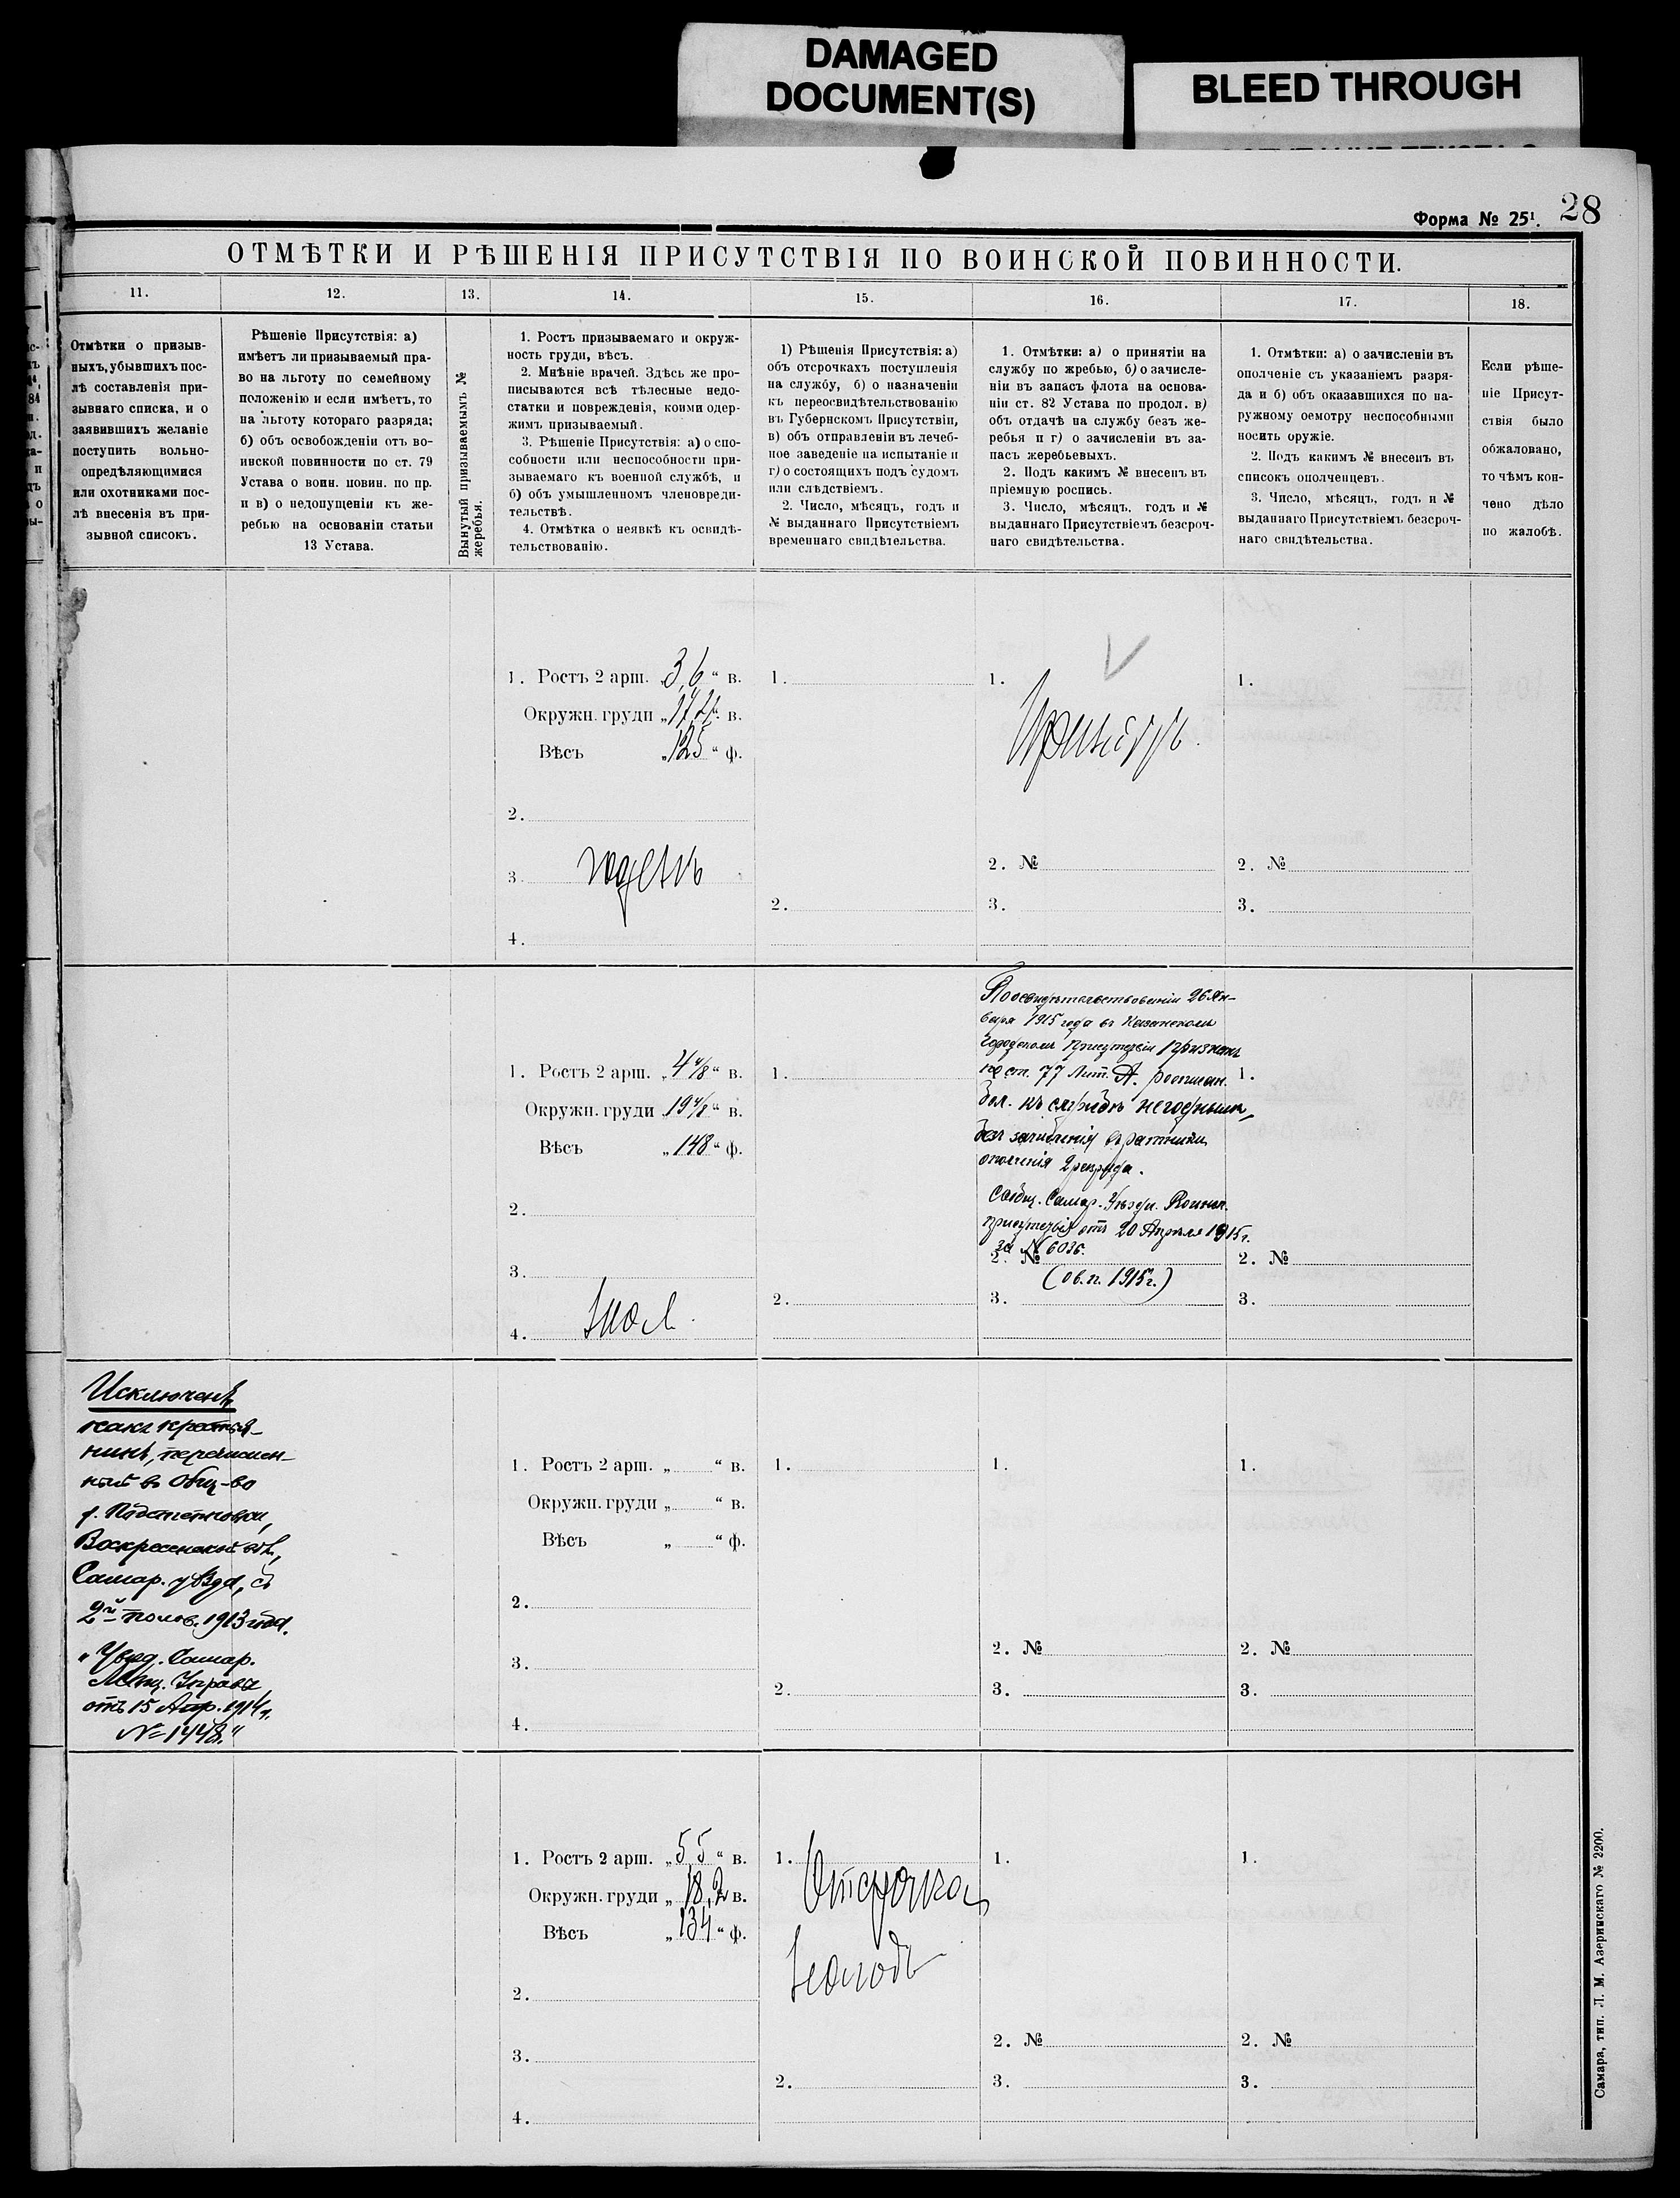 DAMAGED
DOCUMENT(S)
BLEED THROUGH
28
Форма № 25¹.
ОТМѢТКИ И РѢШЕНІЯ ПРИСУТСТВІЯ ПО ВОИНСКОЙ ПОВИННОСТИ.
11.
12.
13.
14.
15.
16.
17.
18.
Отмѣтки о призыв-
ныхъ, убывшихъ пос-
лѣ составленія при-
зывнаго списка, и о
заявившихъ желаніе
поступить вольно-
опредѣляющимися
или охотниками пос-
лѣ внесенія въ при-
зывной списокъ.
Рѣшеніе Присутствія: а)
имѣетъ ли призываемый пра-
во на льготу по семейному
положенію и если имѣетъ, то
на льготу котораго разряда;
б) объ освобожденіи отъ во-
инской повинности по ст. 79
Устава о воин. повин. по пр.
и в) о недопущеніи къ же-
ребью на основаніи статьи
13 Устава.
Вынутый призываемымъ №
жеребья.
1. Ростъ призываемаго и окруж-
ность груди, вѣсъ.
2. Мнѣніе врачей. Здѣсь же про-
писываются всѣ тѣлесные недо-
статки и поврежденія, коими одер-
жимъ призываемый.
3. Рѣшеніе Присутствія: а) о спо-
собности или неспособности при-
зываемаго къ военной службѣ, и
б) объ умышленномъ членовреди-
тельствѣ.
4. Отмѣтка о неявкѣ къ освидѣ-
тельствованію.
1) Рѣшенія Присутствія: а)
объ отсрочкахъ поступленія
на службу, б) о назначеніи
къ переосвидѣтельствованію
въ Губернскомъ Присутствіи,
в) объ отправленіи въ лечеб-
ное заведеніе на испытаніе и
г) о состоящихъ подъ судомъ
или слѣдствіемъ.
2. Число, мѣсяцъ, годъ и
№ выданнаго Присутствіемъ
временнаго свидѣтельства.
1. Отмѣтки: а) о принятіи на
службу по жребью, б) о зачисле-
ніи въ запасъ флота на основа-
ніи ст. 82 Устава по продол. в)
объ отдачѣ на службу безъ же-
ребья и г) о зачисленіи въ за-
пасъ жеребьевыхъ.
2. Подъ какимъ № внесенъ въ
пріемную роспись.
3. Число, мѣсяцъ, годъ и №
выданнаго Присутствіемъ безсроч-
наго свидѣтельства.
1. Отмѣтки: а) о зачисленіи въ
ополченіе съ указаніемъ разря-
да и б) объ оказавшихся по на-
ружному осмотру неспособными
носить оружіе.
2. Подъ какимъ № внесенъ въ
списокъ ополченцевъ.
3. Число, мѣсяцъ, годъ и №
выданнаго Присутствіемъ безсроч-
наго свидѣтельства.
Если рѣше-
ніе Присут-
ствія было
обжаловано,
то чѣмъ кон-
чено дѣло
по жалобѣ.
1. Ростъ 2 арш. „3,6“ в.
Окружн. груди „17,2“ в.
Вѣсъ „125“ ф.
2.
3. годенъ
4.
1.
2.
1.
Принятъ.
2. №
3.
1.
2. №
3.
1. Ростъ 2 арш. „4 4/8“ в.
Окружн. груди „19 4/8“ в.
Вѣсъ „148“ ф.
2.
3.
4.
1.
2.
По освидѣтельствованіи 26 Ян-
варя 1915 года въ Казанскомъ
городскомъ присутствіи признанъ
по ст. 77 Лит. А. росписан.
бол. къ службѣ негоднымъ,
безъ зачисленія въ ратники
ополченія 2 разряда.
Сообщ. Самар. Уѣздн. Воинск.
присутствія отъ 20 Апрѣля 1915 г.
за № 6036.
2. №
(ов. п. 1915 г.)
3.
1.
2. №
3.
Исключенъ,
какъ крестья-
нинъ, перечислен-
ный въ Общ-во
д. Подстепновки,
Воскресенской вол.,
Самар. уѣзда, съ
2й полов. 1913 года.
„Увѣд. Самар.
Мѣщ. Управы
отъ 15 Апр. 1914 г.
№ 1448.“
1. Ростъ 2 арш. „ “ в.
Окружн. груди „ “ в.
Вѣсъ „ “ ф.
2.
3.
4.
1.
2.
1.
2. №
3.
1.
2. №
3.
1. Ростъ 2 арш. „5,5“ в.
Окружн. груди „18,2 в.
Вѣсъ „134“ ф.
2.
3.
4.
1. Отсрочка
2.
1.
2. №
3.
1.
2. №
3.
Самара, тип. Л. М. Азеринскаго № 2200.